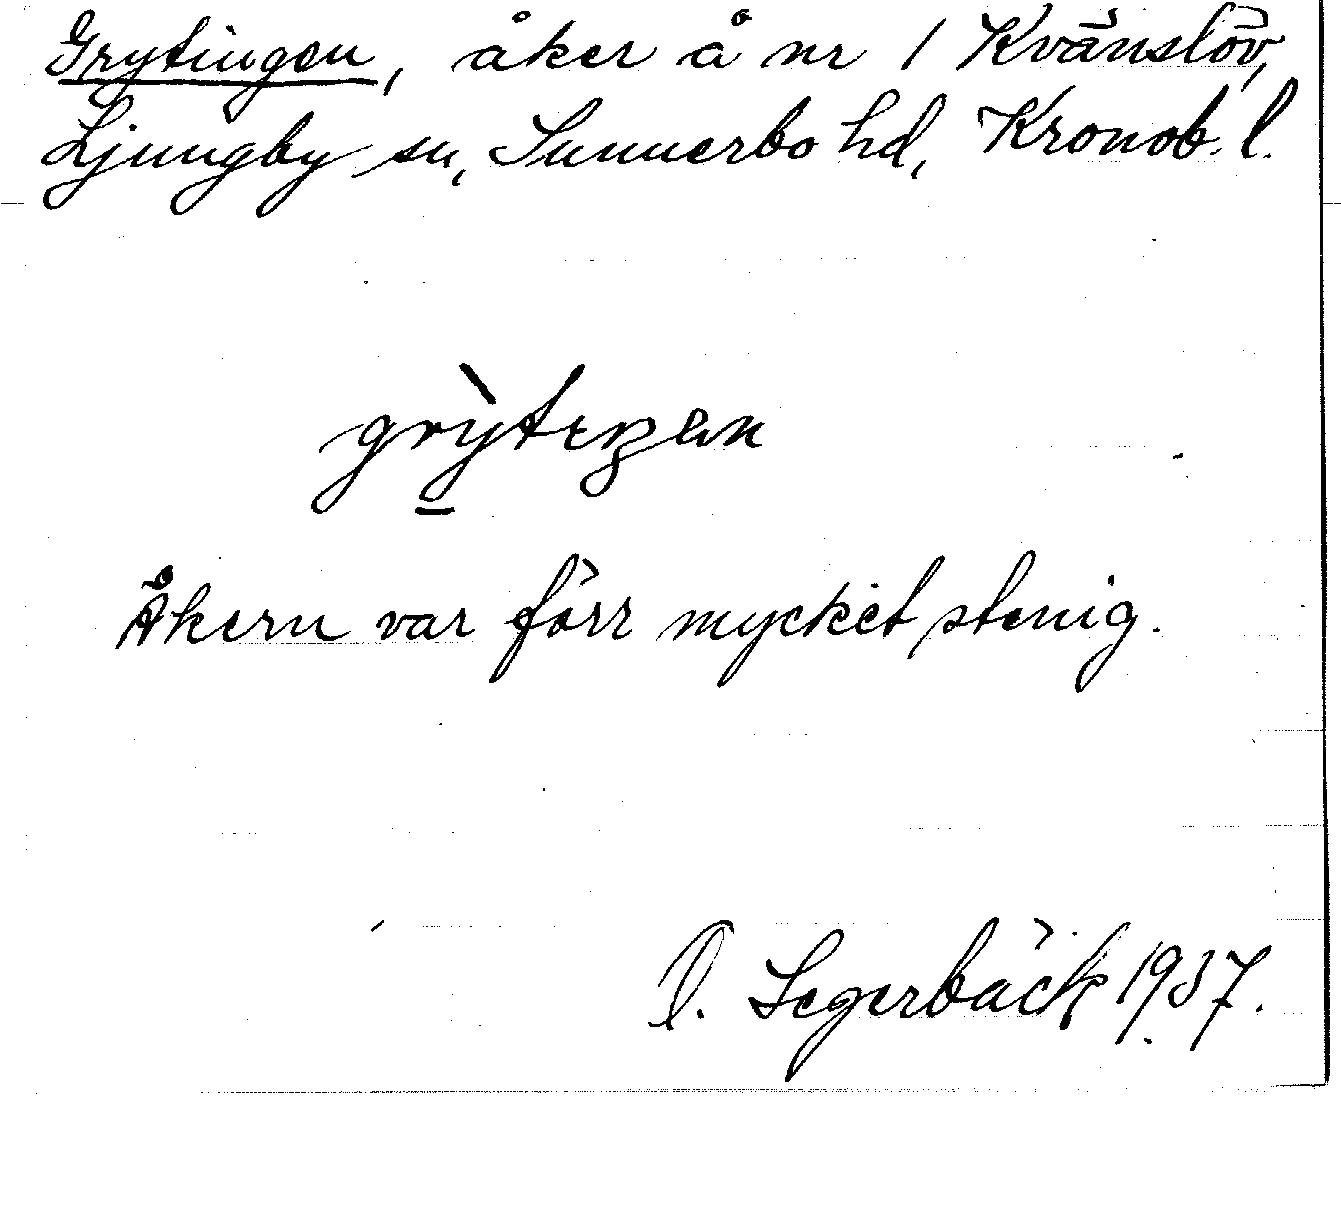 Grytingen, åker å nr 1 Kvänslöv,
Ljungby sn, Sunnerbo hd, Kronob. l.
Åkern var förr mycket stenig.
Segerbäck 1937.